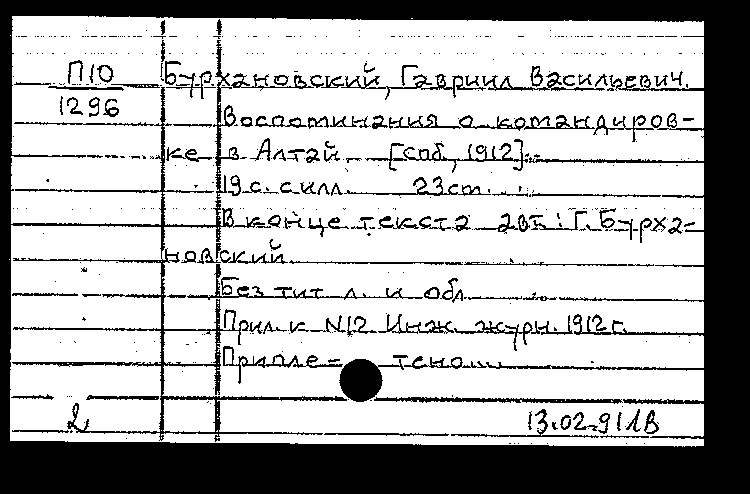 П10 Бурхановский, Гавриил Васильевич.
1296
Воспоминания о командиров-
ке в Алтай. [Спб, 1912].
19 с. с илл. 23 см.
В конце текста авт.: Г. Бурха-
новский.
Без тит. л. и обл.
Прил. к N12 Инж. журн. 1912 г.
Припле- тено.
2 13.02.91 ЛВ